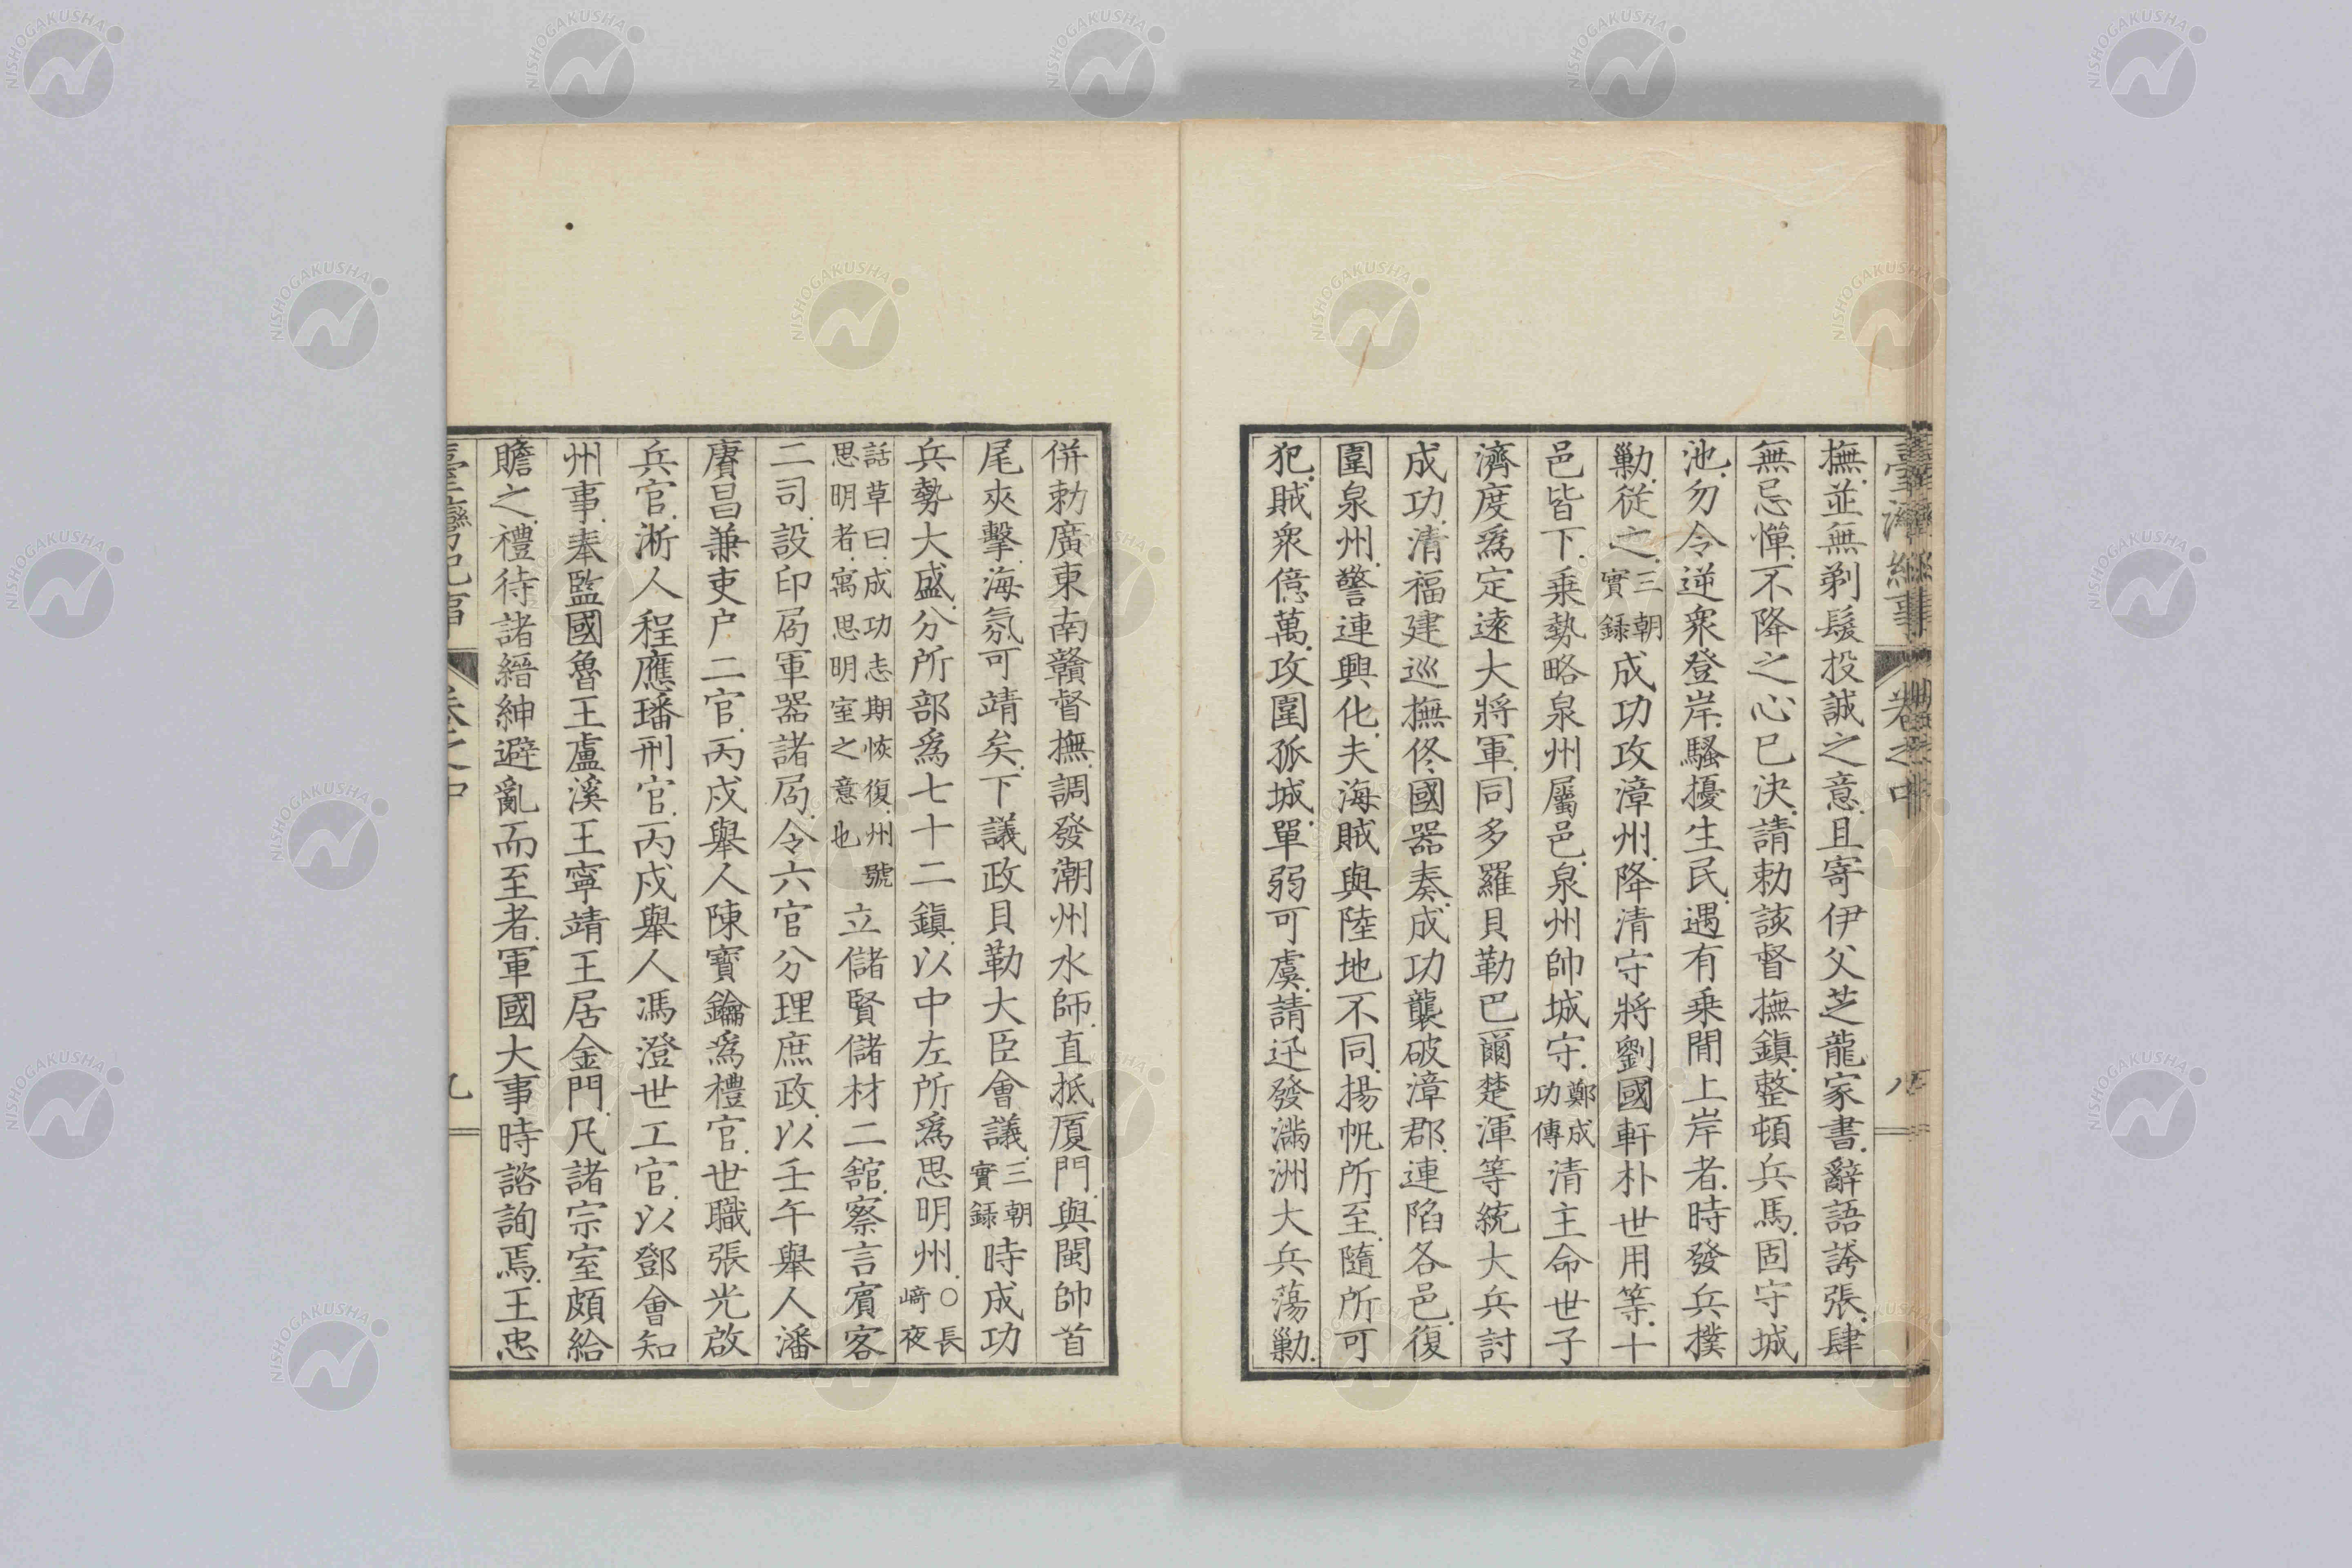 撫.並無剃髮投誠之意.且寄伊父芝龍家書.辭語誇張.肆
無忌憚.不降之心已決.請勅該督撫鎮.整頓兵馬.固守城
池.勿令逆衆登岸.騷擾生民.遇有乗間上岸者.時發兵撲
勦.從之.三朝實録成功攻漳州.降清守將劉國軒朴世用等.十
邑皆下.乗勢略泉州屬邑.泉州帥城守.鄭成功傳清主命世子
濟度爲定遠大將軍.同多羅貝勒巴爾楚渾等統大兵討
成功.清福建巡撫佟國器奏.成功襲破漳郡.連陷各邑.復
圍泉州.警連興化.夫海賊與陸地不同.揚帆所至.隨所可
犯.賊衆億萬.攻圍孤城.單弱可虞.請迅發滿洲大兵蕩勦.
併勅廣東南贛督撫.調發潮州水師.直抵厦門.與閩帥首
尾夾擊.海氛可靖矣.下議政貝勒大臣會議.三朝實録時成功
兵勢大盛.分所部爲七十二鎮.以中左所爲思明州.○長崎夜
話草曰.成功志期恢復.州號思明者.寓思明室之意也立儲賢儲材二舘.察言賓客
二司.設印局軍器諸局.令六官分理庶政.以壬午舉人潘
賡昌兼吏户二官.丙戍舉人陳寶鑰爲禮官.世職張光啟
兵官.淅人程應璠刑官.丙戍舉人馮澄世工官.以鄧會知
州事.奉監國魯王盧溪王寧靖王居金門.凡諸宗室頗給
贍之.禮待諸縉紳避亂而至者.軍國大事時諮詢焉.王忠
卷之中
九